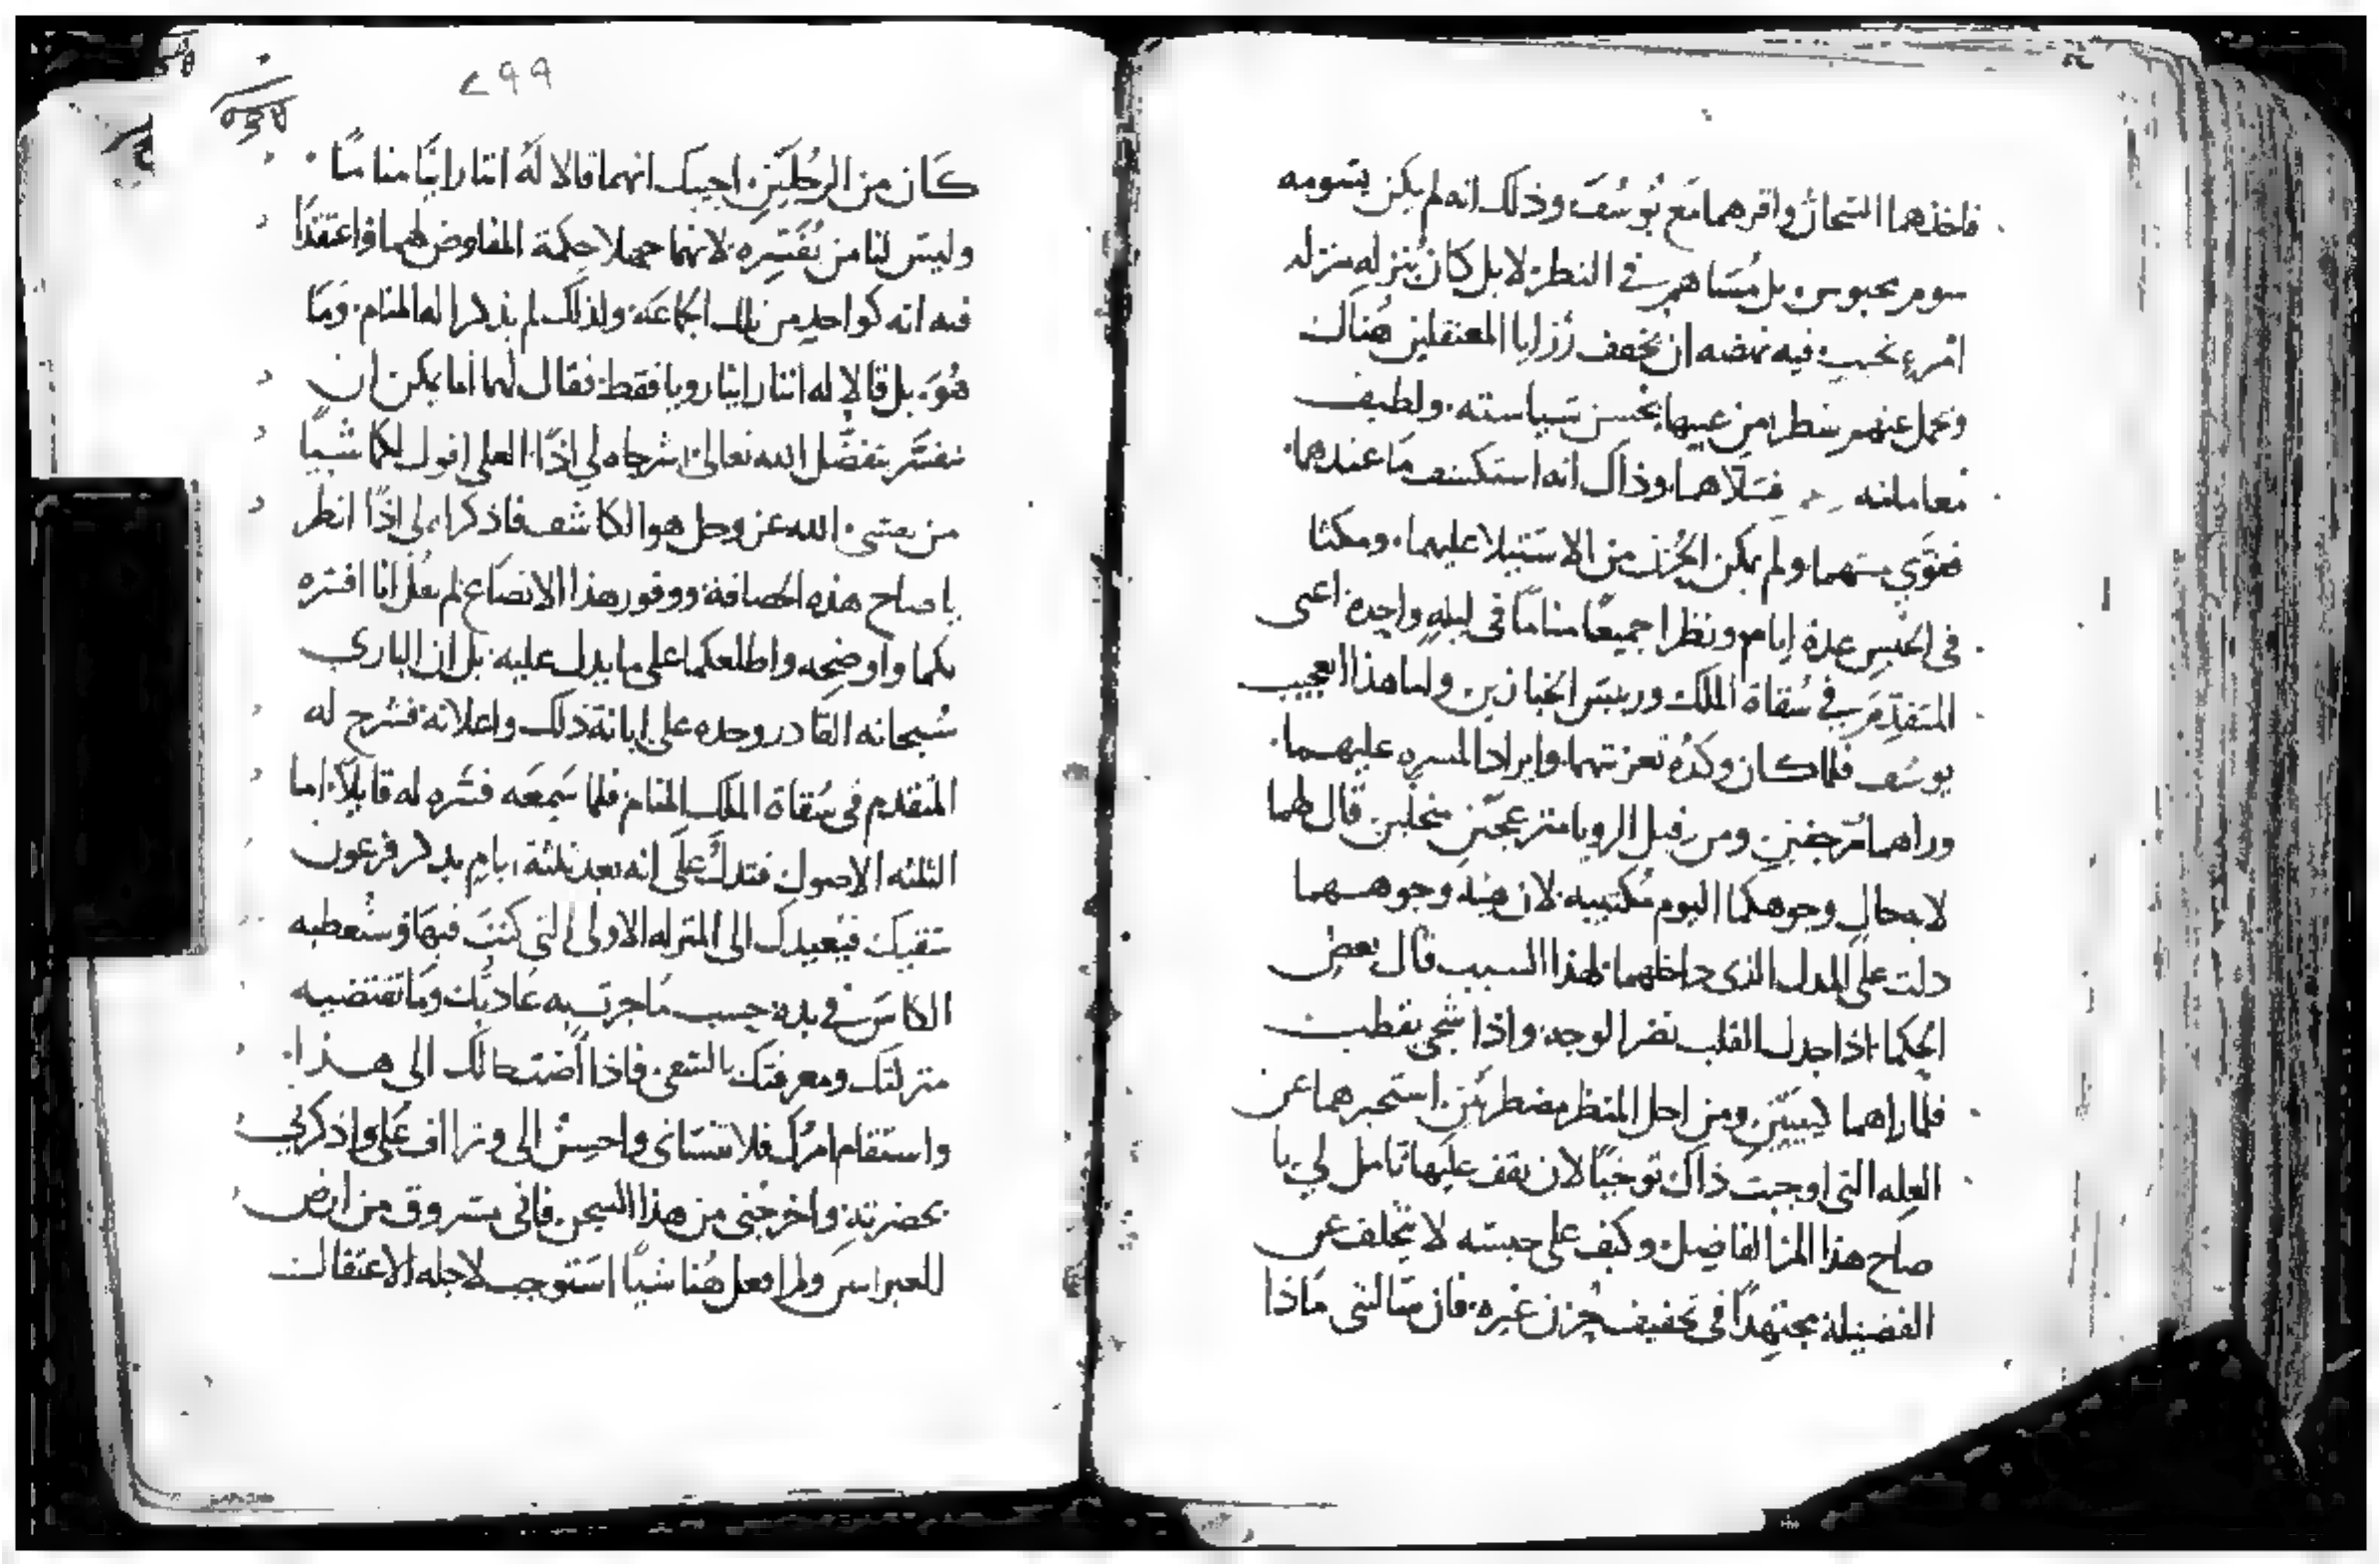 فاخذهما السجان واقرهما مع يُوسُفَ وذلك انه لم يكن يسومه
سوم محبوس بل مُسَاهم في النظر لا بل كان يُنزله منزله
امرء نحيب فيه نهضه ان يخفف رزايا المعتقلين هناك
وتحمل عنهم شطرا من عبيها بحسن سياسته ولطيف
معاملته فسَلاهما وذاك انه استكشف مَا عندهما
فقوّي متنهما ولم يمكن الحُزن من الاستيلا عليهما ومكثا
في الحبس عدة ايام ونظرا جميعًا منامًا في ليله واحده اعني
المتقدّم في سُقاة الملك وريس الخبازين ولما هذا العجيب
يوسُف فلما كان وكدُه تعزيتهما وايراد المسره عليهما
وراهما مرجضين ومن قبل الرويا منزعجَين منحلين قال لهما
لا محال وجوهكما اليوم مكتيبه لان هيئة وجوهـهما
دلت على المدل الذي داخلهما لهذا السبب قال بعض
الحكما اذا جدل القلب نضر الوجه واذا شجي يقطب
فلما راهما كييبَين ومن اجل المنظر مضطربَين استخبرهما عن
العله التي اوجبت ذاك توخيًا لان يقف عليها تامل لي يا
صاح هذا المرا الفاضل وكيف على حبسه لا يتخلف عن
الفضيله مجتهدًا في تخفيف حُزن غيره فان سَالتني مَاذا
٢٩٩
كَان من الرجُلين اجيبك انهما قالا لهُ اننا راينَا منامًا
وليس لنا من يُفَسّره لانهما جهلا حكمة المفاوض لهما واعتقدَا
فيه انه كواحد من تلك الجماعَة ولذلك لم يذكرا له المنام وَمَا
هُوَ بل قالا له اننا راينا رويا فقط فقال لهما اما يمكن ان
تفسّر بتفضّل الله تعالى اشرحاه لي اذًا لعلي اقول لكما شييًا
من الله عز وجل هو الكاشف فاذكراه لي اذًا انظر
يا صاح هذه الحصافة ووفور هذا الاتضاع لم يقُل انا افسره
لكما واوضحه واطلعكما على ما يدل عليه بل ان الباري
سُبحانه القادر وحده على ابانة ذلك واعلانه فشرح له
المتقدم في سُقاة الملك المنام فلما سَمعَه فسّره له قايلاً اما
الثلثه الاصول فتدلّ على انه بعد ثلثة ايام يذكر فرعون
سقيك فيعيدك الى المنزله الاولى التي كنتَ فيهَا وستعطيه
الكاسَ في يده حسب مَا جرت به عَادتك ومَا تقتضيه
منزلتك ومعرفتك بالسقي فاذا افضت حالك الى هـذا
واستقام امرُك فلا تنسَاني واحسِنْ الى وتراف عَلي واذكرني
بحضرته واخرجني من هذا السجن فاني مسروق من ارض
العبرانيين ولم افعل هُنا شيًا استوجب لاجله الاعتقال